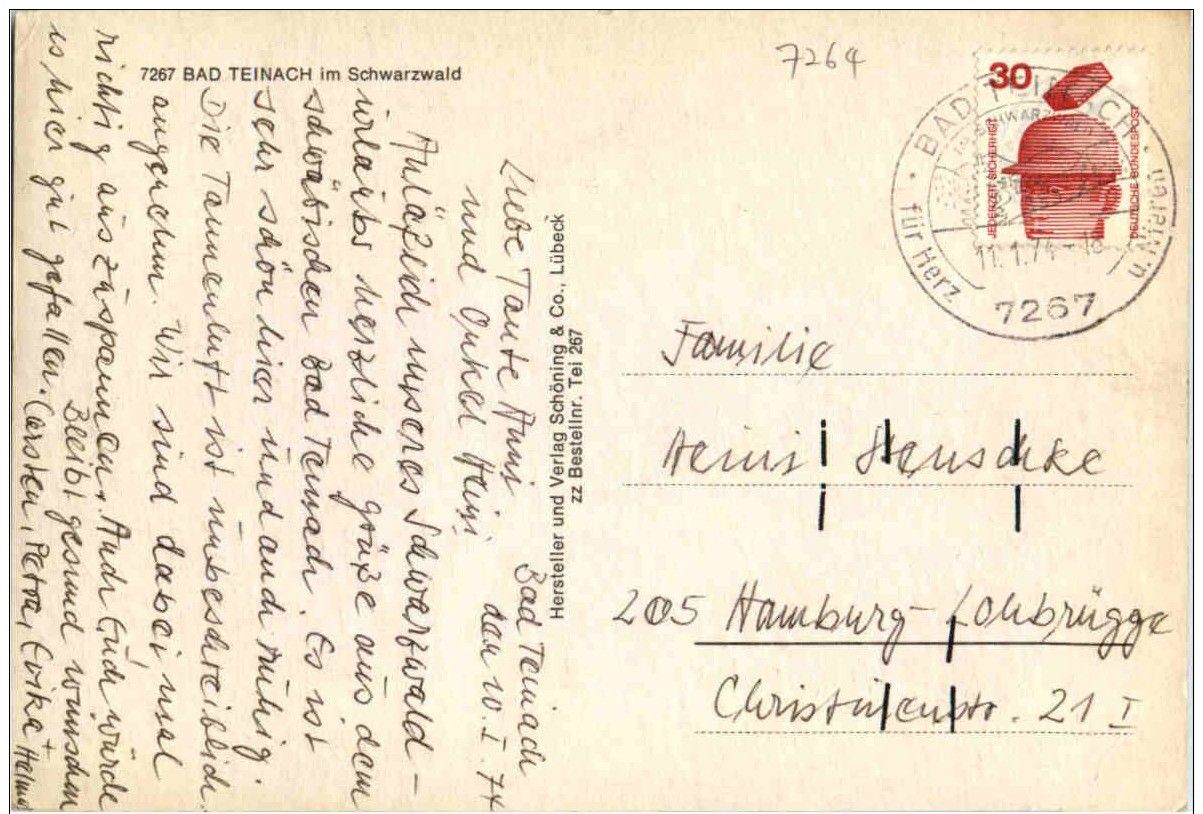 7267 BAD TEINACH im Schwarzwald
7264
30
JEDERZEIT SICHERHEIT
DEUTSCHE BUNDESPOST
BAD TEINACH
für Herz u. Nieren
11.1.74 - 16
7267
Bad Teinach
den 10. I. 74
Liebe Tante Anni
und Onkel Heini.
Anläßlich unseres Schwarzwald-
urlaubs herzliche Grüße aus dem
schwäbischen Bad Teinach. Es ist
sehr schön hier und auch ruhig.
Die Tannenluft ist unbeschreiblich
angenehm. Wir sind dabei, uns
richtig auszuspannen. Auch Euch würde
es hier gut gefallen.
Bleibt gesund wünschen
Carsten, Petra, Erika + Helmut
Hersteller und Verlag Schöning & Co., Lübeck
zz Bestellnr. Tei 267
Familie
Heini
205 Hamburg-Lohbrügge
Christinenstr. 21 I